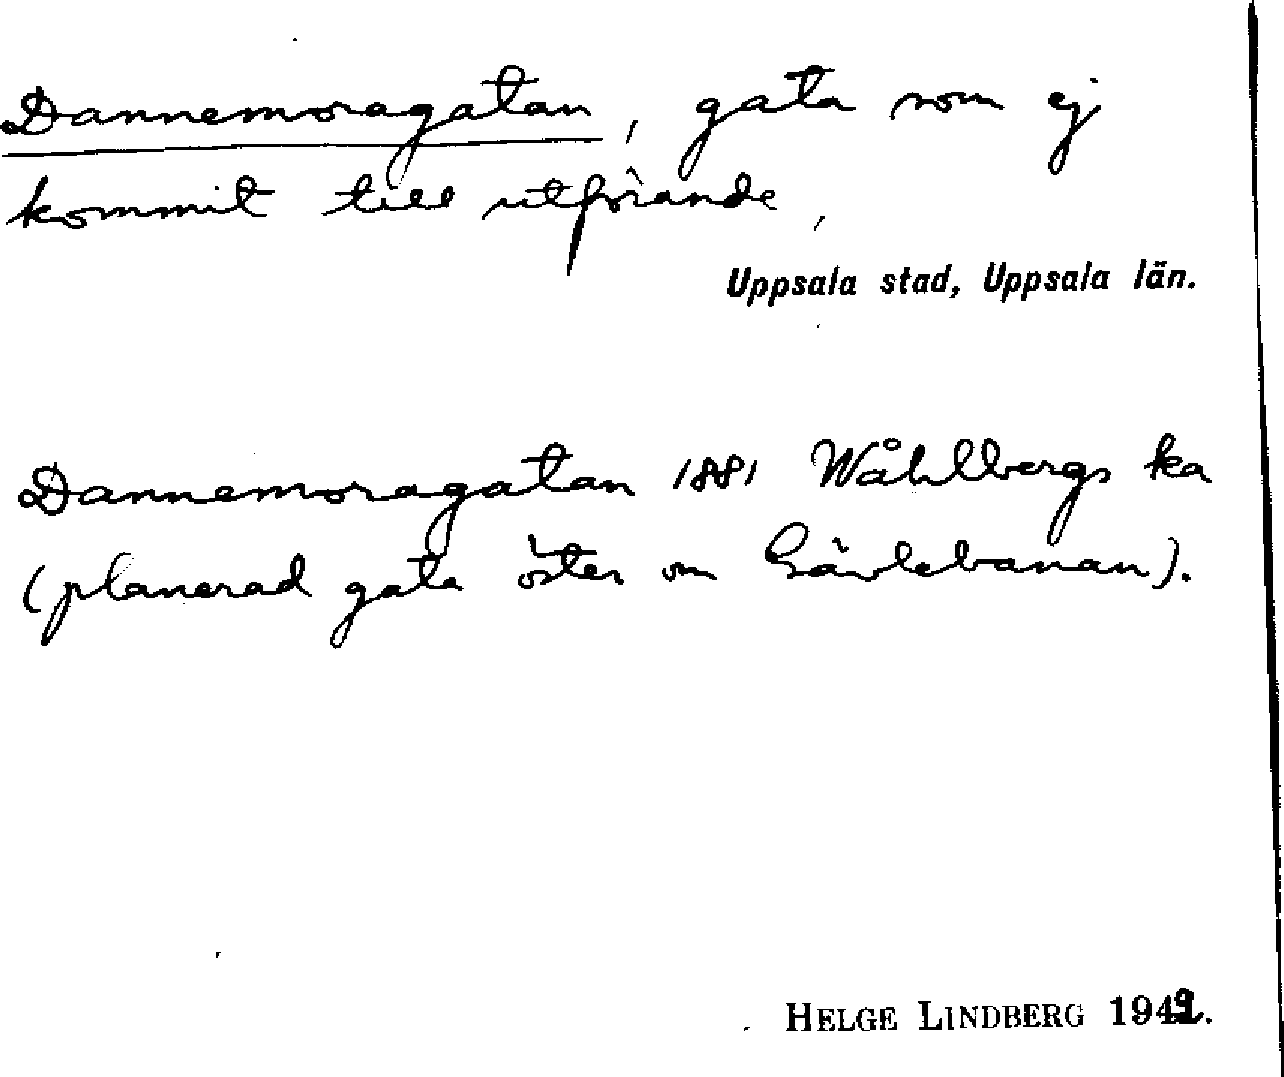 Dannemoragatan, gata som ej
kommit till utförande,
Uppsala stad, Uppsala län.
Dannemoragatan 1881 Wåhlbergs ka
(planerad gata öster om Gävlebanan).
HELGE LINDBERG 1942.